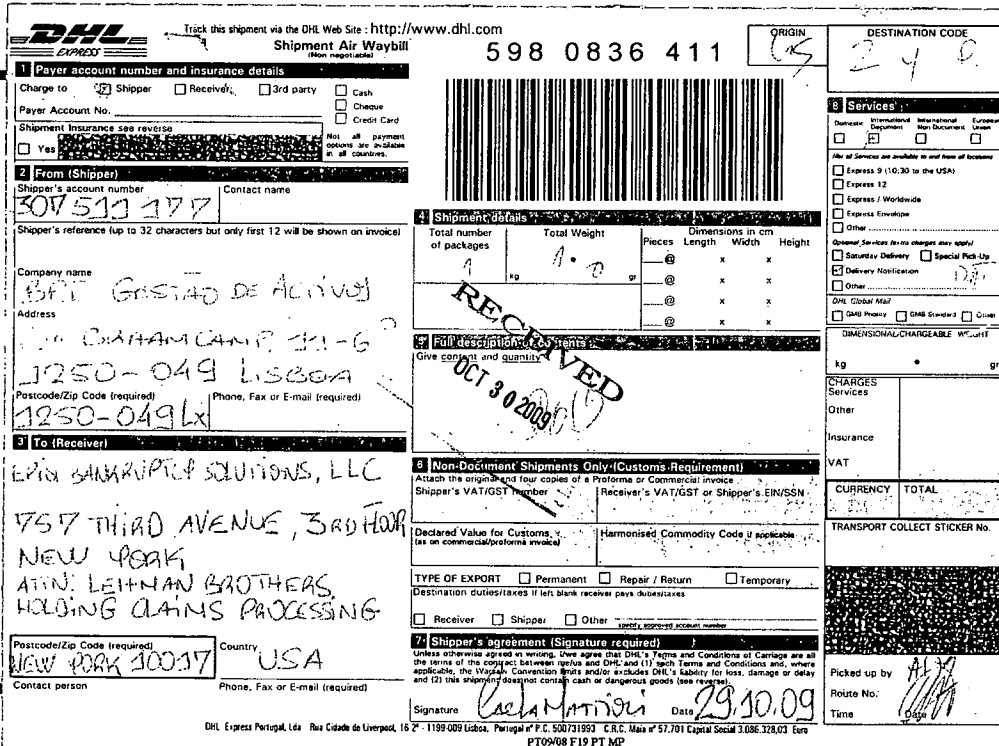 DHL
EXPRESS
Track this shipment via the DHL Web Site : http://www.dhl.com
Shipment Air Waybill
(Non negotiable)
598 0836 411
ORIGIN
LIS
DESTINATION CODE
1 Payer account number and insurance details
Charge to Shipper Receiver 3rd party
Cash
Cheque
Credit Card
Payer Account No.
Shipment Insurance see reverse
Yes
Not all payment options are available in all countries.
2 From (Shipper)
Shipper's account number
Contact name
307511177
Shipper's reference (up to 32 characters but only first 12 will be shown on invoice)
Company name
GESTÃO DE ACTIVOS
Address
11-6º
1250-049 LISBOA
Postcode/Zip Code (required)
Phone, Fax or E-mail (required)
1250-049 Lx
3 To (Receiver)
EPIQ BANKRUPTCY SOLUTIONS, LLC
757 THIRD AVENUE, 3RD FLOOR
NEW YORK
ATTN: LEHMAN BROTHERS
HOLDING CLAIMS PROCESSING
Postcode/Zip Code (required)
Country
NEW YORK 10017 USA
Contact person
Phone, Fax or E-mail (required)
4 Shipment details
Total number of packages
Total Weight
Dimensions in cm
Pieces Length Width Height
1
1.0
kg gr
@ x x
@ x x
@ x x
@ x x
5 Full description of contents
Give content and quantity
RECEIVED
OCT 30 2009
6 Non-Document Shipments Only (Customs Requirement)
Attach the original and four copies of a Proforma or Commercial invoice
Shipper's VAT/GST number
Receiver's VAT/GST or Shipper's EIN/SSN
Declared Value for Customs
(as on commercial/proforma invoice)
Harmonised Commodity Code if applicable
TYPE OF EXPORT Permanent Repair / Return Temporary
Destination duties/taxes If left blank receiver pays duties/taxes
Receiver Shipper Other
specify approved account number
7 Shipper's agreement (Signature required)
Unless otherwise agreed in writing, I/we agree that DHL's Terms and Conditions of Carriage are all
the terms of the contract between me/us and DHL and (1) such Terms and Conditions and, where
applicable, the Warsaw Convention limits and/or excludes DHL's liability for loss, damage or delay
and (2) this shipment does not contain cash or dangerous goods (see reverse).
Signature
Date 29.10.09
8 Services
Domestic
International Document
International Non Document
European Union
Not all Services are available to and from all locations
Express 9 (10:30 to the USA)
Express 12
Express / Worldwide
Express Envelope
Other
Optional Services (extra charges may apply)
Saturday Delivery Special Pick-Up
Delivery Notification
Other
DHL Global Mail
GMB Priority GMB Standard Other
DIMENSIONAL/CHARGEABLE WEIGHT
kg gr
CHARGES
Services
Other
Insurance
VAT
CURRENCY TOTAL
TRANSPORT COLLECT STICKER No.
Picked up by
Route No.
Time Date
DHL Express Portugal, Lda Rua Cidade de Liverpool, 16 2º - 1199-009 Lisboa, Portugal nº P.C. 500731993 C.R.C. Maia nº 57.701 Capital Social 3.086.328,03 Euro
PT09/08 F19 PT MP